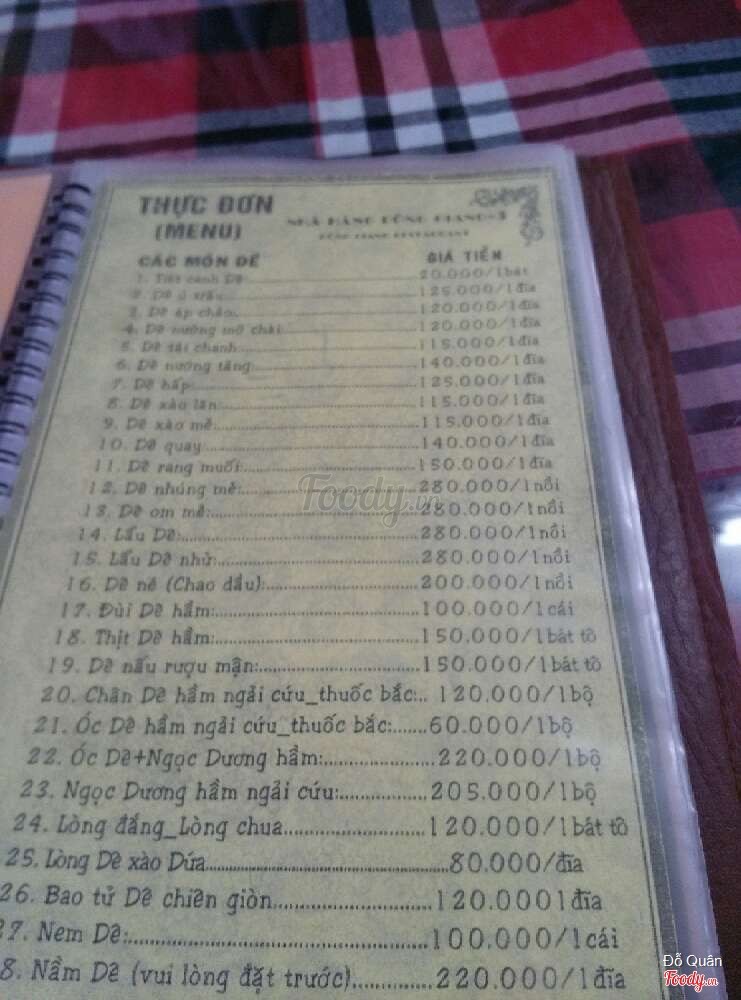 THỰC ĐƠN
(MENU)
NHÀ HÀNG ĐỒNG GIANG-3
CÁC MÓN DÊ GIÁ TIỀN
1. Tiết canh Dê 20.000/1bát
2. Dê ủ trấu 125.000/1đĩa
3. Dê áp chảo 120.000/1đĩa
4. Dê nướng mỡ chài 120.000/1đĩa
5. Dê tái chanh 115.000/1đĩa
6. Dê nướng tảng 140.000/1đĩa
7. Dê hấp 125.000/1đĩa
8. Dê xào lăn 115.000/1đĩa
9. Dê xào mẻ 115.000/1đĩa
10. Dê quay 140.000/1đĩa
11. Dê rang muối 150.000/1đĩa
12. Dê nhúng mẻ: 280.000/1nồi
13. Dê om mẻ: 280.000/1nồi
14. Lẩu Dê: 280.000/1nồi
15. Lẩu Dê nhừ 280.000/1nồi
16. Dê né (Chao dầu): 200.000/1nồi
17. Đùi Dê hầm: 100.000/1cái
18. Thịt Dê hầm: 150.000/1bát tô
19. Dê nấu rượu mận: 150.000/1bát tô
20. Chân Dê hầm ngải cứu_thuốc bắc: 120.000/1bộ
21. Óc Dê hầm ngải cứu_thuốc bắc: 60.000/1bộ
22. Óc Dê+Ngọc Dương hầm: 220.000/1bộ
23. Ngọc Dương hầm ngải cứu: 205.000/1bộ
24. Lòng đắng_Lòng chua 120.000/1bát tô
25. Lòng Dê xào Dứa 80.000/đĩa
26. Bao tử Dê chiên giòn 120.0001đĩa
27. Nem Dê: 100.000/1cái
8. Nầm Dê (vui lòng đặt trước) 220.000/1đĩa
Foody.vn
Đỗ Quân
Foody.vn